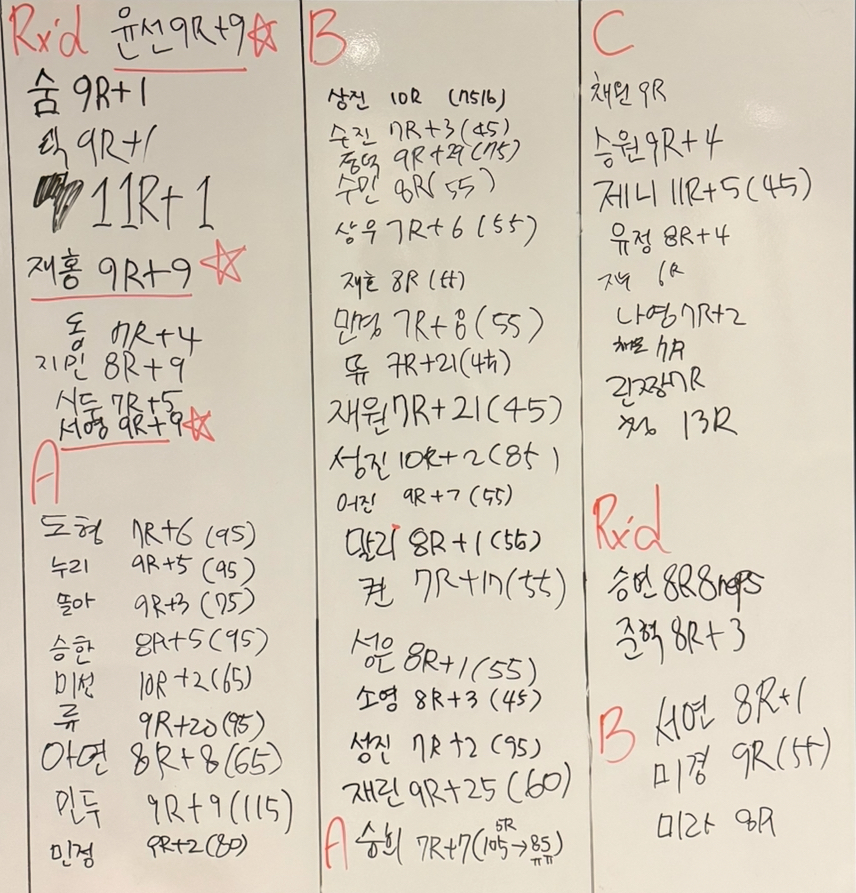 Rx'd 윤선 9R+9
숨 9R+1
택 9R+1
11R+1
재홍 9R+9
동 7R+4
지민 8R+9
시두 7R+5
서영 9R+9
A
도형 7R+6 (95)
누리 9R+5 (95)
뜰아 9R+3 (75)
승한 8R+5 (95)
미선 10R+2 (65)
류 9R+20 (95)
아연 8R+8 (65)
민두 9R+9 (115)
민정 9R+2 (80)
B
상진 10R
수진 7R+3 (45)
9R+29 (75)
수민 8R (55)
상우 7R+6 (55)
재호 8R (55)
민영 7R+8 (55)
뜌 7R+21 (45)
재원 7R+21 (45)
성진 10R+2 (85)
어진 9R+7 (55)
말리 8R+1 (55)
퀸 7R+17 (55)
성은 8R+1 (55)
소영 8R+3 (45)
성진 7R+2 (95)
재린 9R+25 (60)
A 승희 7R+7 (105 5R → 85) ㅠㅠ
C
채원 9R
승원 9R+4
제니 11R+5 (45)
유정 8R+4
6R
나영 7R+2
7R
긴장 7R
13R
Rx'd
승언 8R 8reps
준혁 8R+3
B 서연 8R+1
미경 9R (55)
미라 8R